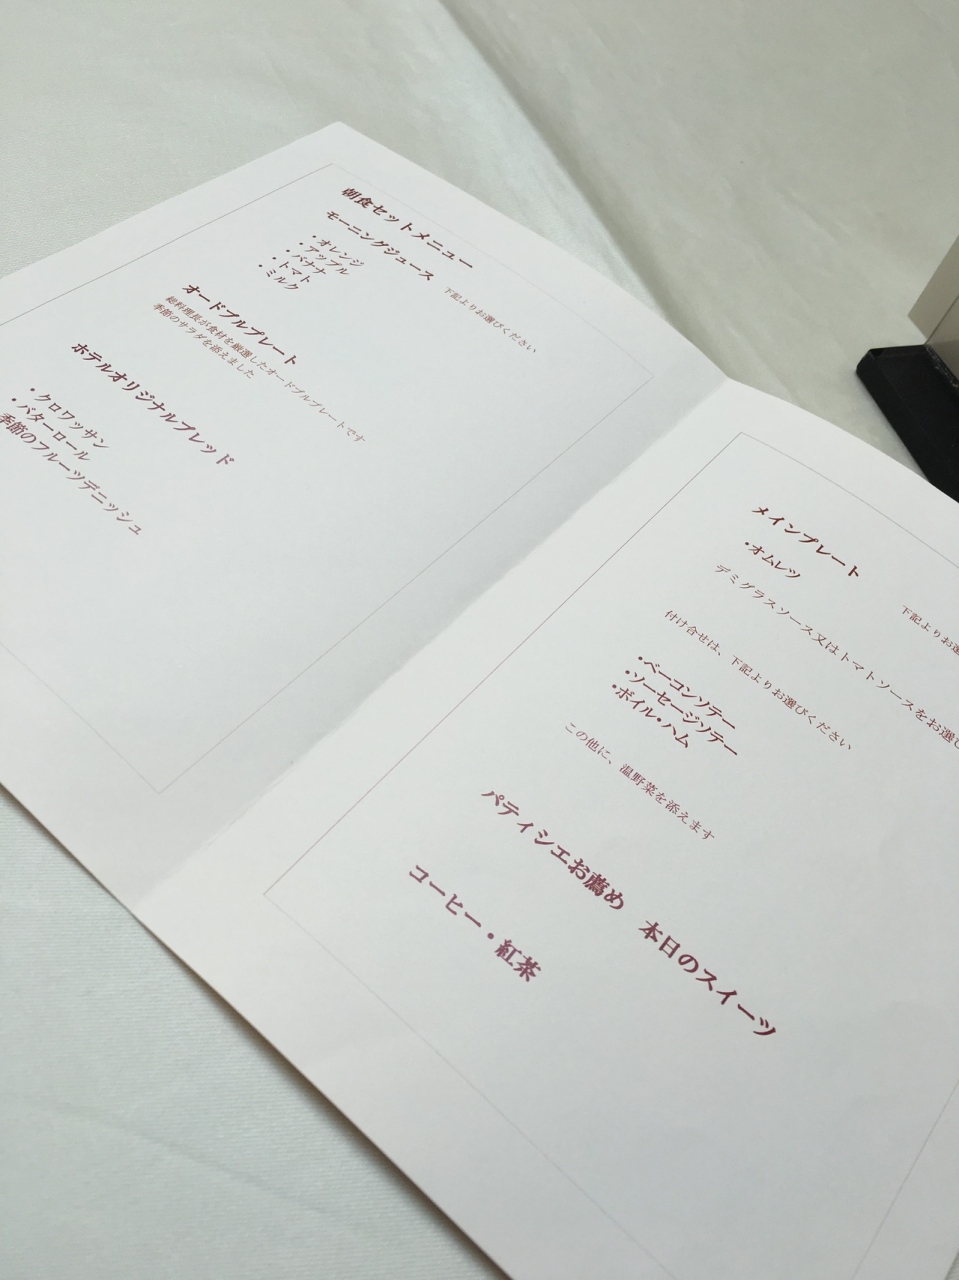 朝食セットメニュー
モーニングジュース 下記よりお選びください
・オレンジ
・アップル
・バナナ
・トマト
・ミルク
オードブルプレート
総料理長が食材を厳選したオードブルプレートです
季節のサラダを添えました
ホテルオリジナルブレッド
・クロワッサン
・バターロール
季節のフルーツデニッシュ
メインプレート 下記よりお選
・オムレツ
デミグラスソース又はトマトソースをお選び
付け合せは、下記よりお選びください
・ベーコンソテー
・ソーセージソテー
・ボイル・ハム
この他に、温野菜を添えます
パティシエお薦め 本日のスイーツ
コーヒー・紅茶